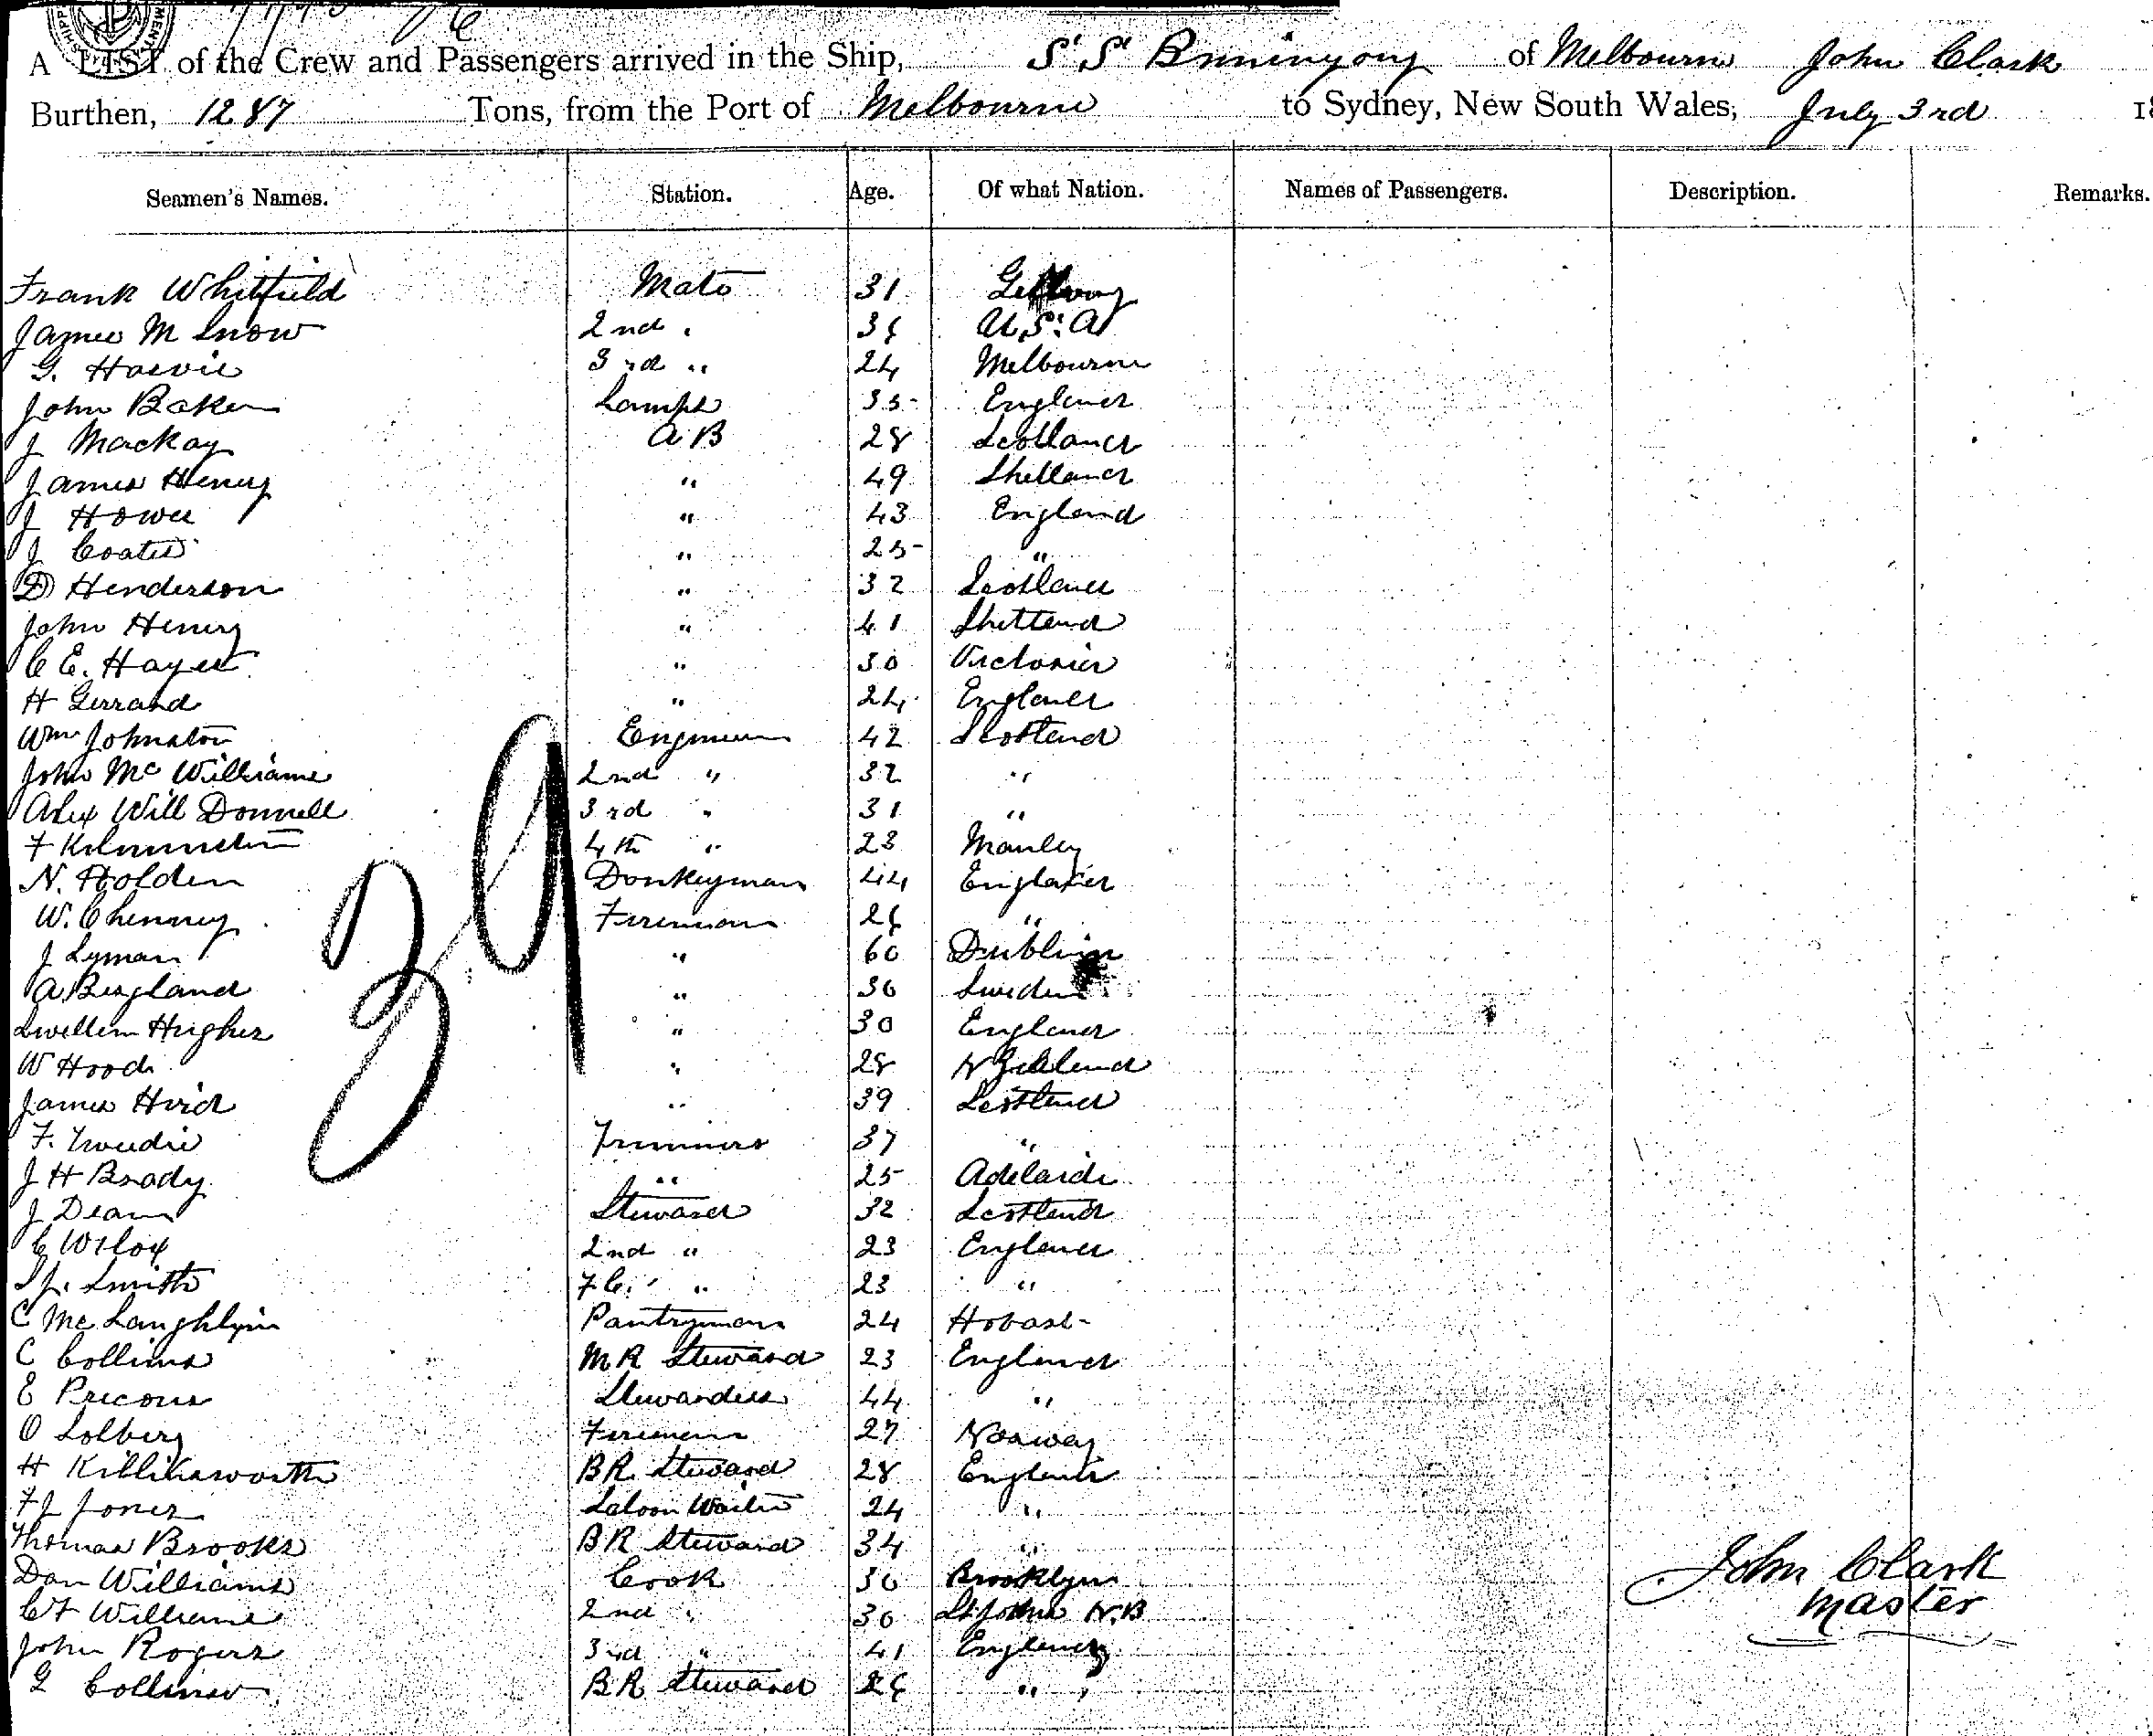 A LIST of the Crew and Passengers arrived in the Ship, S S Buninyong of Melbourne John Clark
Burthen, 1287 Tons, from the Port of Melbourne to Sydney, New South Wales, July 3rd 18
Seamen's Names. Station. Age. Of what Nation. Names of Passengers. Description. Remarks.
Frank Whitfield Mate 31
James M Snow 2nd " 36 U.S.A
G. Harvie 3rd " 24 Melbourne
John Baker Lamps 35 England
J Mackay A B 28 Scotland
James Henry " 49 Shetland
J Howe " 43 England
J Coates " 25 "
D Henderson " 32 Scotland
John Henry " 41 Shetland
C E. Hayes " 30 Victoria
H Gerrand " 24 England
Wm Johnston Engineer 42 Scotland
John McWilliams 2nd " 32 "
Alex Will Donnell 3rd " 31 "
F Kilminster 4th " 23 Manley
N. Holden Donkeyman 44 England
W. Chenney Fireman 26 "
J Lyman " 60 Dublin
A Bergland " 36 Sweden
Lwellen Hughes " 30 England
W Hood " 28 N Zealand
James Hird " 39 Scotland
F. Tweedie Trimmers 37 "
J H Brady " 25 Adelaide
J Dean Steward 32 Scotland
C Wilox 2nd " 23 England
Smith F.C. " 23 "
C McLaughlin Pantryman 24 Hobart
C Collins M R Steward 23 England
E Precous Stewardess 44 "
O Solberg Fireman 27 Norway
H Killiksworth B R Steward 28 England
F J Jones Saloon Waiter 24 "
Thomas Brooks B R Steward 34 "
Dan Williams Cook 36 Brooklyn
C F Williams 2nd " 30 St Johns N.B
John Rogers 3rd " 41 England
G Collins B R Steward 26 "
39
John Clark
Master